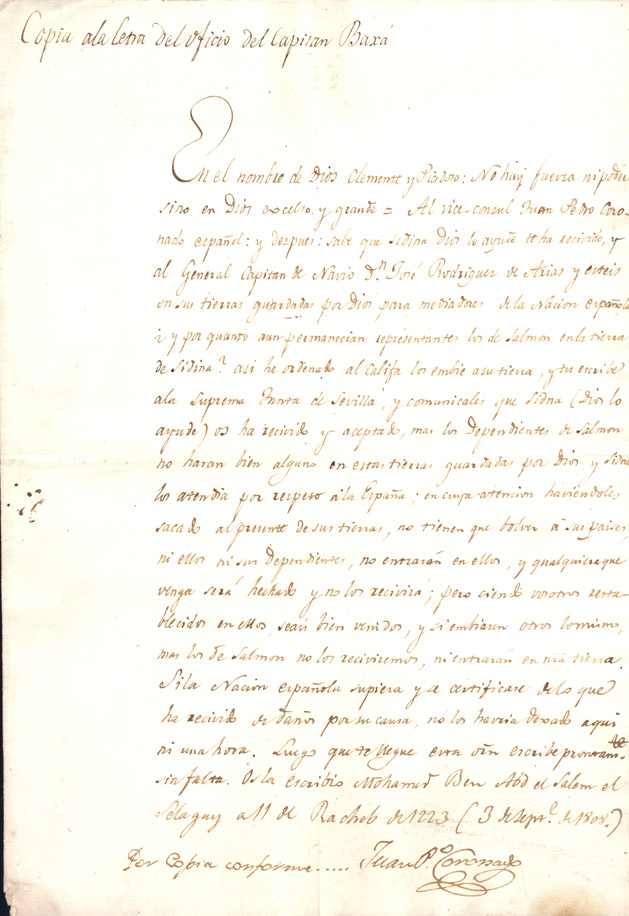 Copia ala letra del oficio del Capitan Baxá
En el nombre de Dios Clemente y Piadoso: No hay fuerza ni poder
sino en Dios excelso y grande = Al vice-consul Juan Pedro Coro-
nado español: y despues: sabe que Sidina Dios lo ayude te ha recivido, y
al General Capitan de Navio Dn. José Rodriguez de Arias y esteis
en sus tierras guardadas por Dios, para mediadores de la Nacion española
y por quanto aun permanecian representantes los de Salmon en la tierra
de Sidina asi he ordenado al Califa los embie a su tierra, y tu escribe
ala Suprema Junta de Sevilla, y comunicales que Sidna (Dios lo
ayude) os ha recivido y aceptado, mas los Dependientes de Salmon
no haran bien alguno en estas tierras guardadas por Dios y Sidna
los atendia por respeto á la España; en cuya atencion haviendoles
sacado al presente de sus tierras, no tienen que bolver á sus paises,
ni ellos ni sus dependientes, no entrarán en ellos, y qualquiera que
venga será hechado y no los recivirá; pero siendo vosotros resta-
blecidos en ellos, seais bien venidos, y si embiaren otros lo mismo,
mas los de Salmon no los reciviremos, ni entrarán en nra tierra.
Si la Nacion española supiera y se certificase de lo que
ha recivido de daños por su causa, no los havria dexado aqui
ni una hora. Luego que te llegue esta orn escribe prontamte
sin falta. Os la escribió Mohamed Ben Abd el Salem el
Selaguy a 11 de Racheb de 1223 (3 de Sepre. de 1808.)
Por Copia conforme..... Juan Po. Coronado